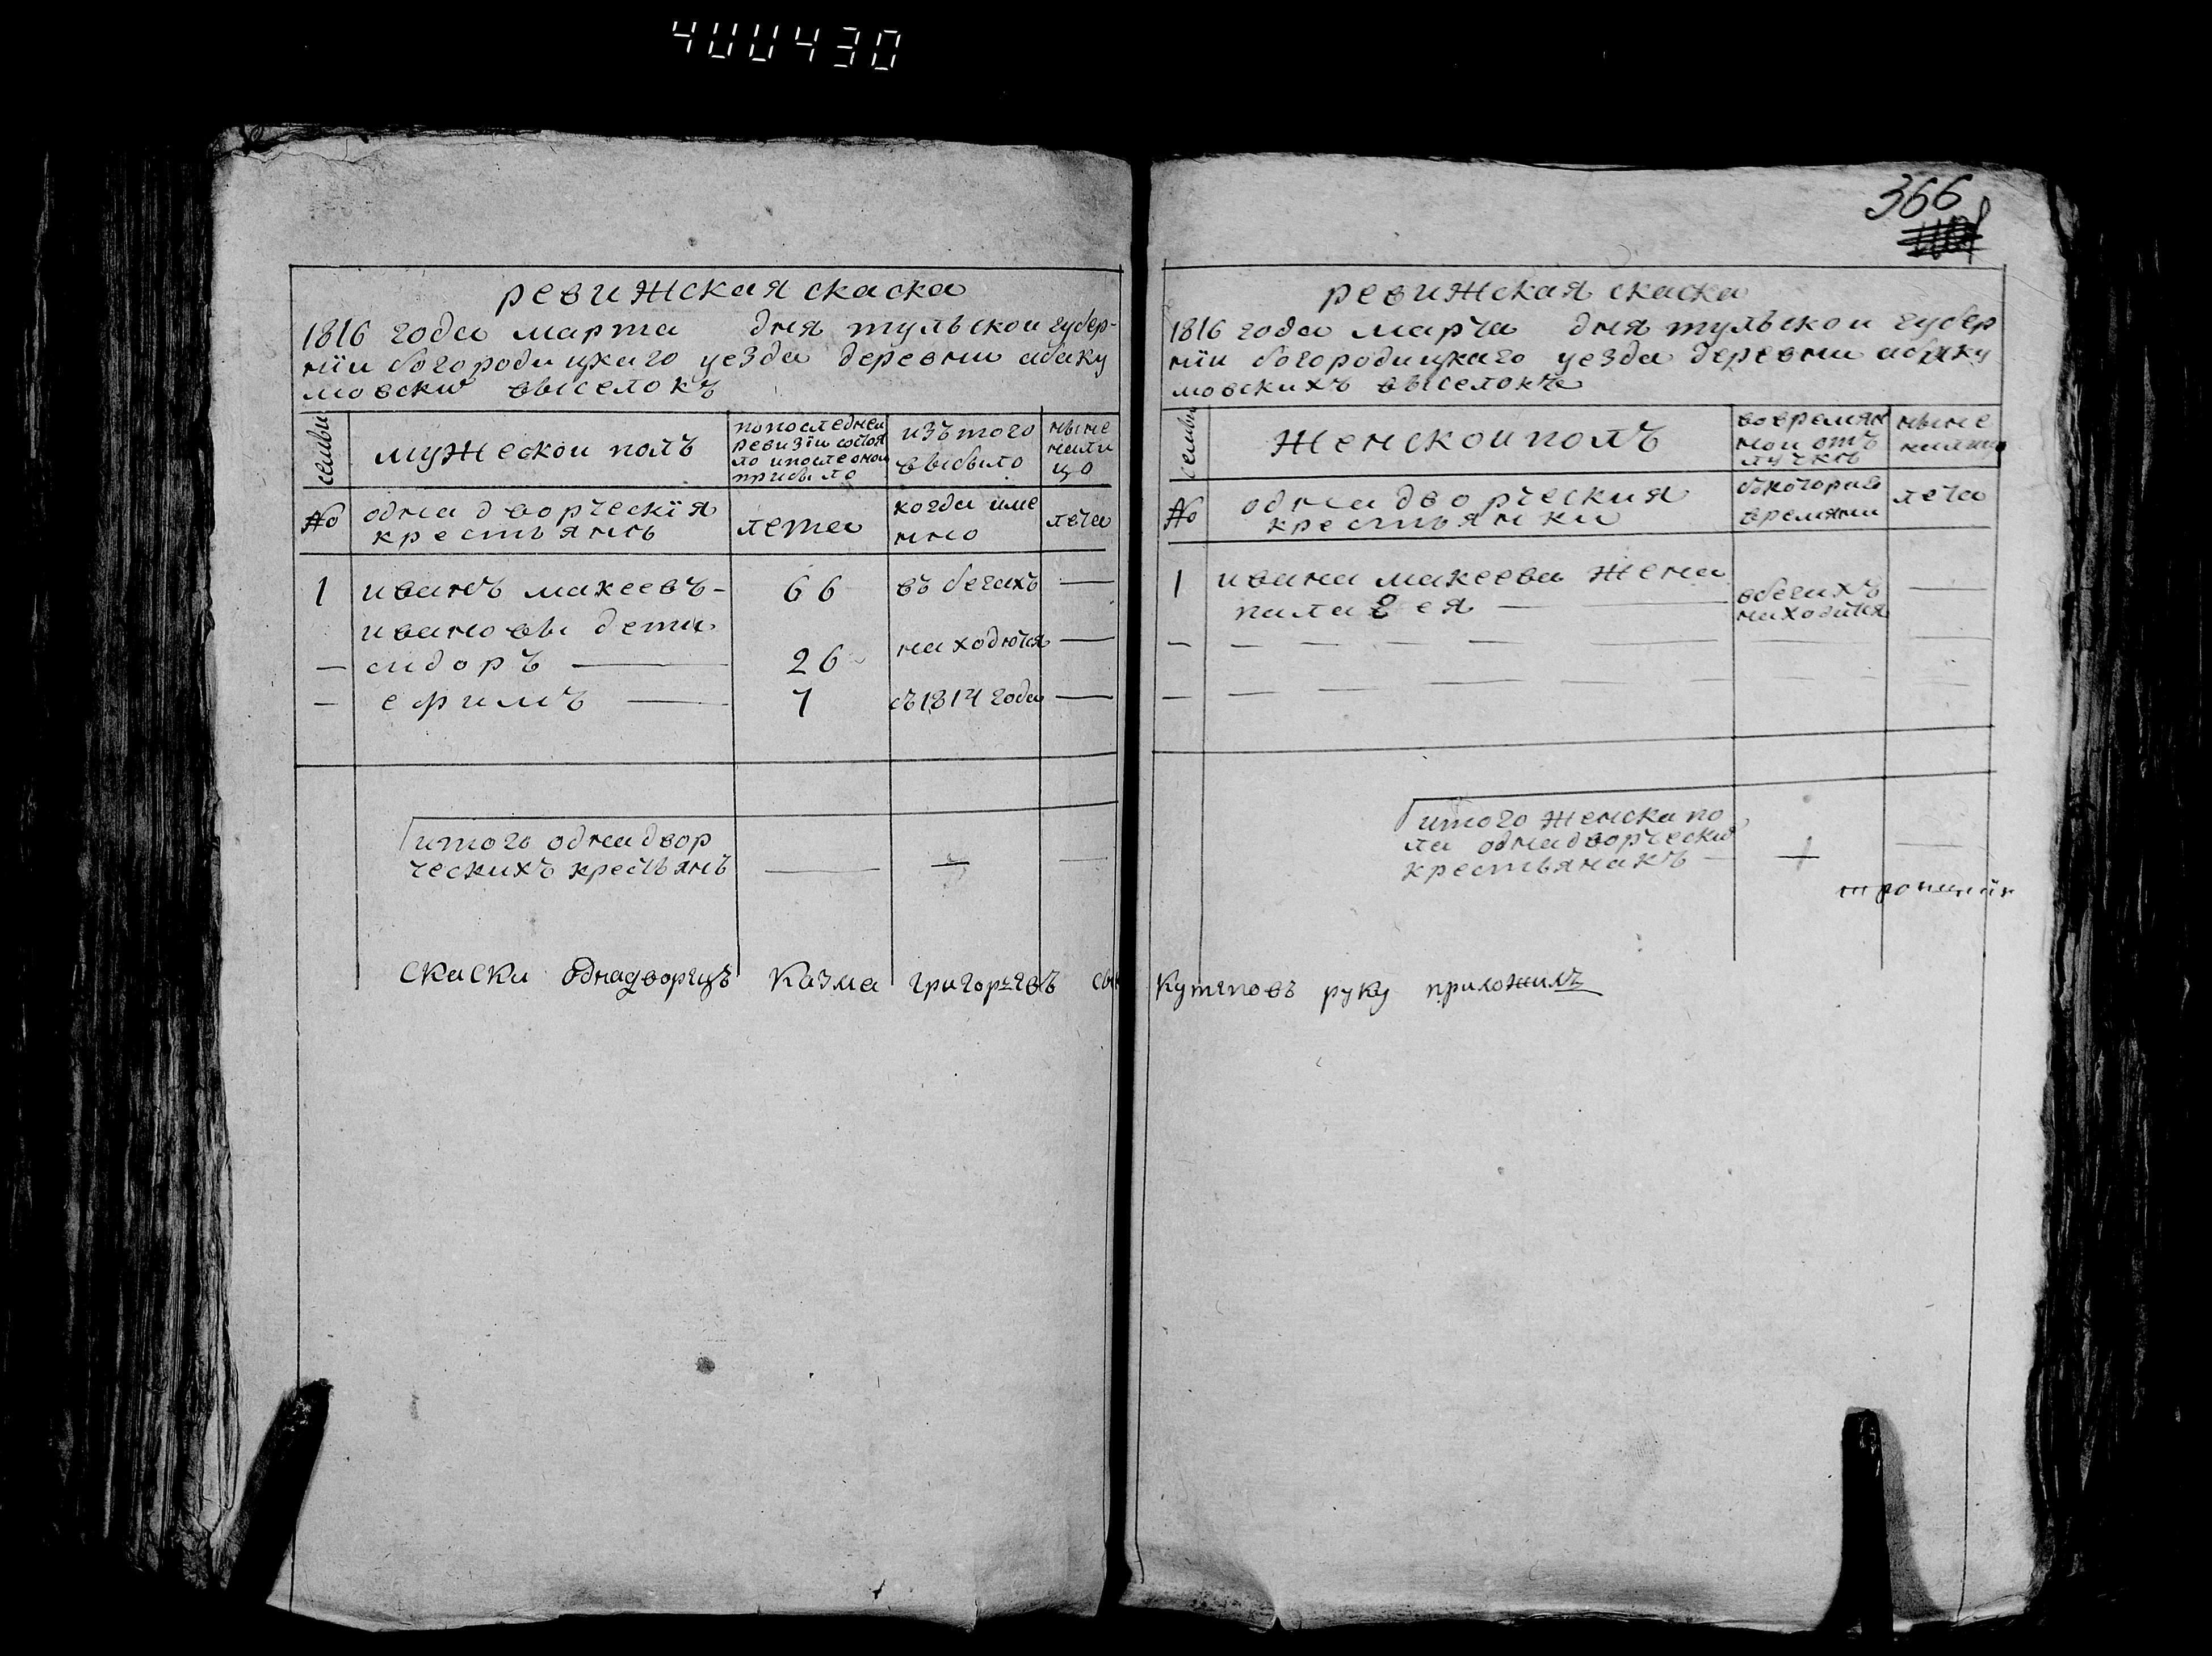 400430
ревижская скаска
1816 года марта дня тульскои губер-
нїи богородицкаго уезда деревни абаку
мовски выселокъ
семьи
мужескои полъ
попоследнеи
ревизїи состоя
ло ипослеонои
прибыло
изътого
выбыло
ныне
налицо
№
однадворческїя
крестьянь
лета
когда име
нно
лета
1 иванъ макеевъ- 66 въ бегахъ —
ивановы дети
— сидоръ — 26 находются —
— ефимъ — 7 съ1814 года —
итого однадвор
ческихъ крестьянъ — — —
скаски однадворцъ казма григорьевъ сын
366
ревижская скаска
1816 года марта дня тульскои губер
нїи богородицкаго уезда деревни абаку
мовскихъ выселокъ
семьи
Женскои полъ
вовремян
нои отъ
лучкѣ
ныне
налицо
№
однадворческия
крестьянки
съкоторыго
времяни
лета
1 ивана макеева жена
палагея — вбегахъ —
находится
итого женска по
ла однадворчески
крестьянакъ — — —
кутеповъ руку приложилъ